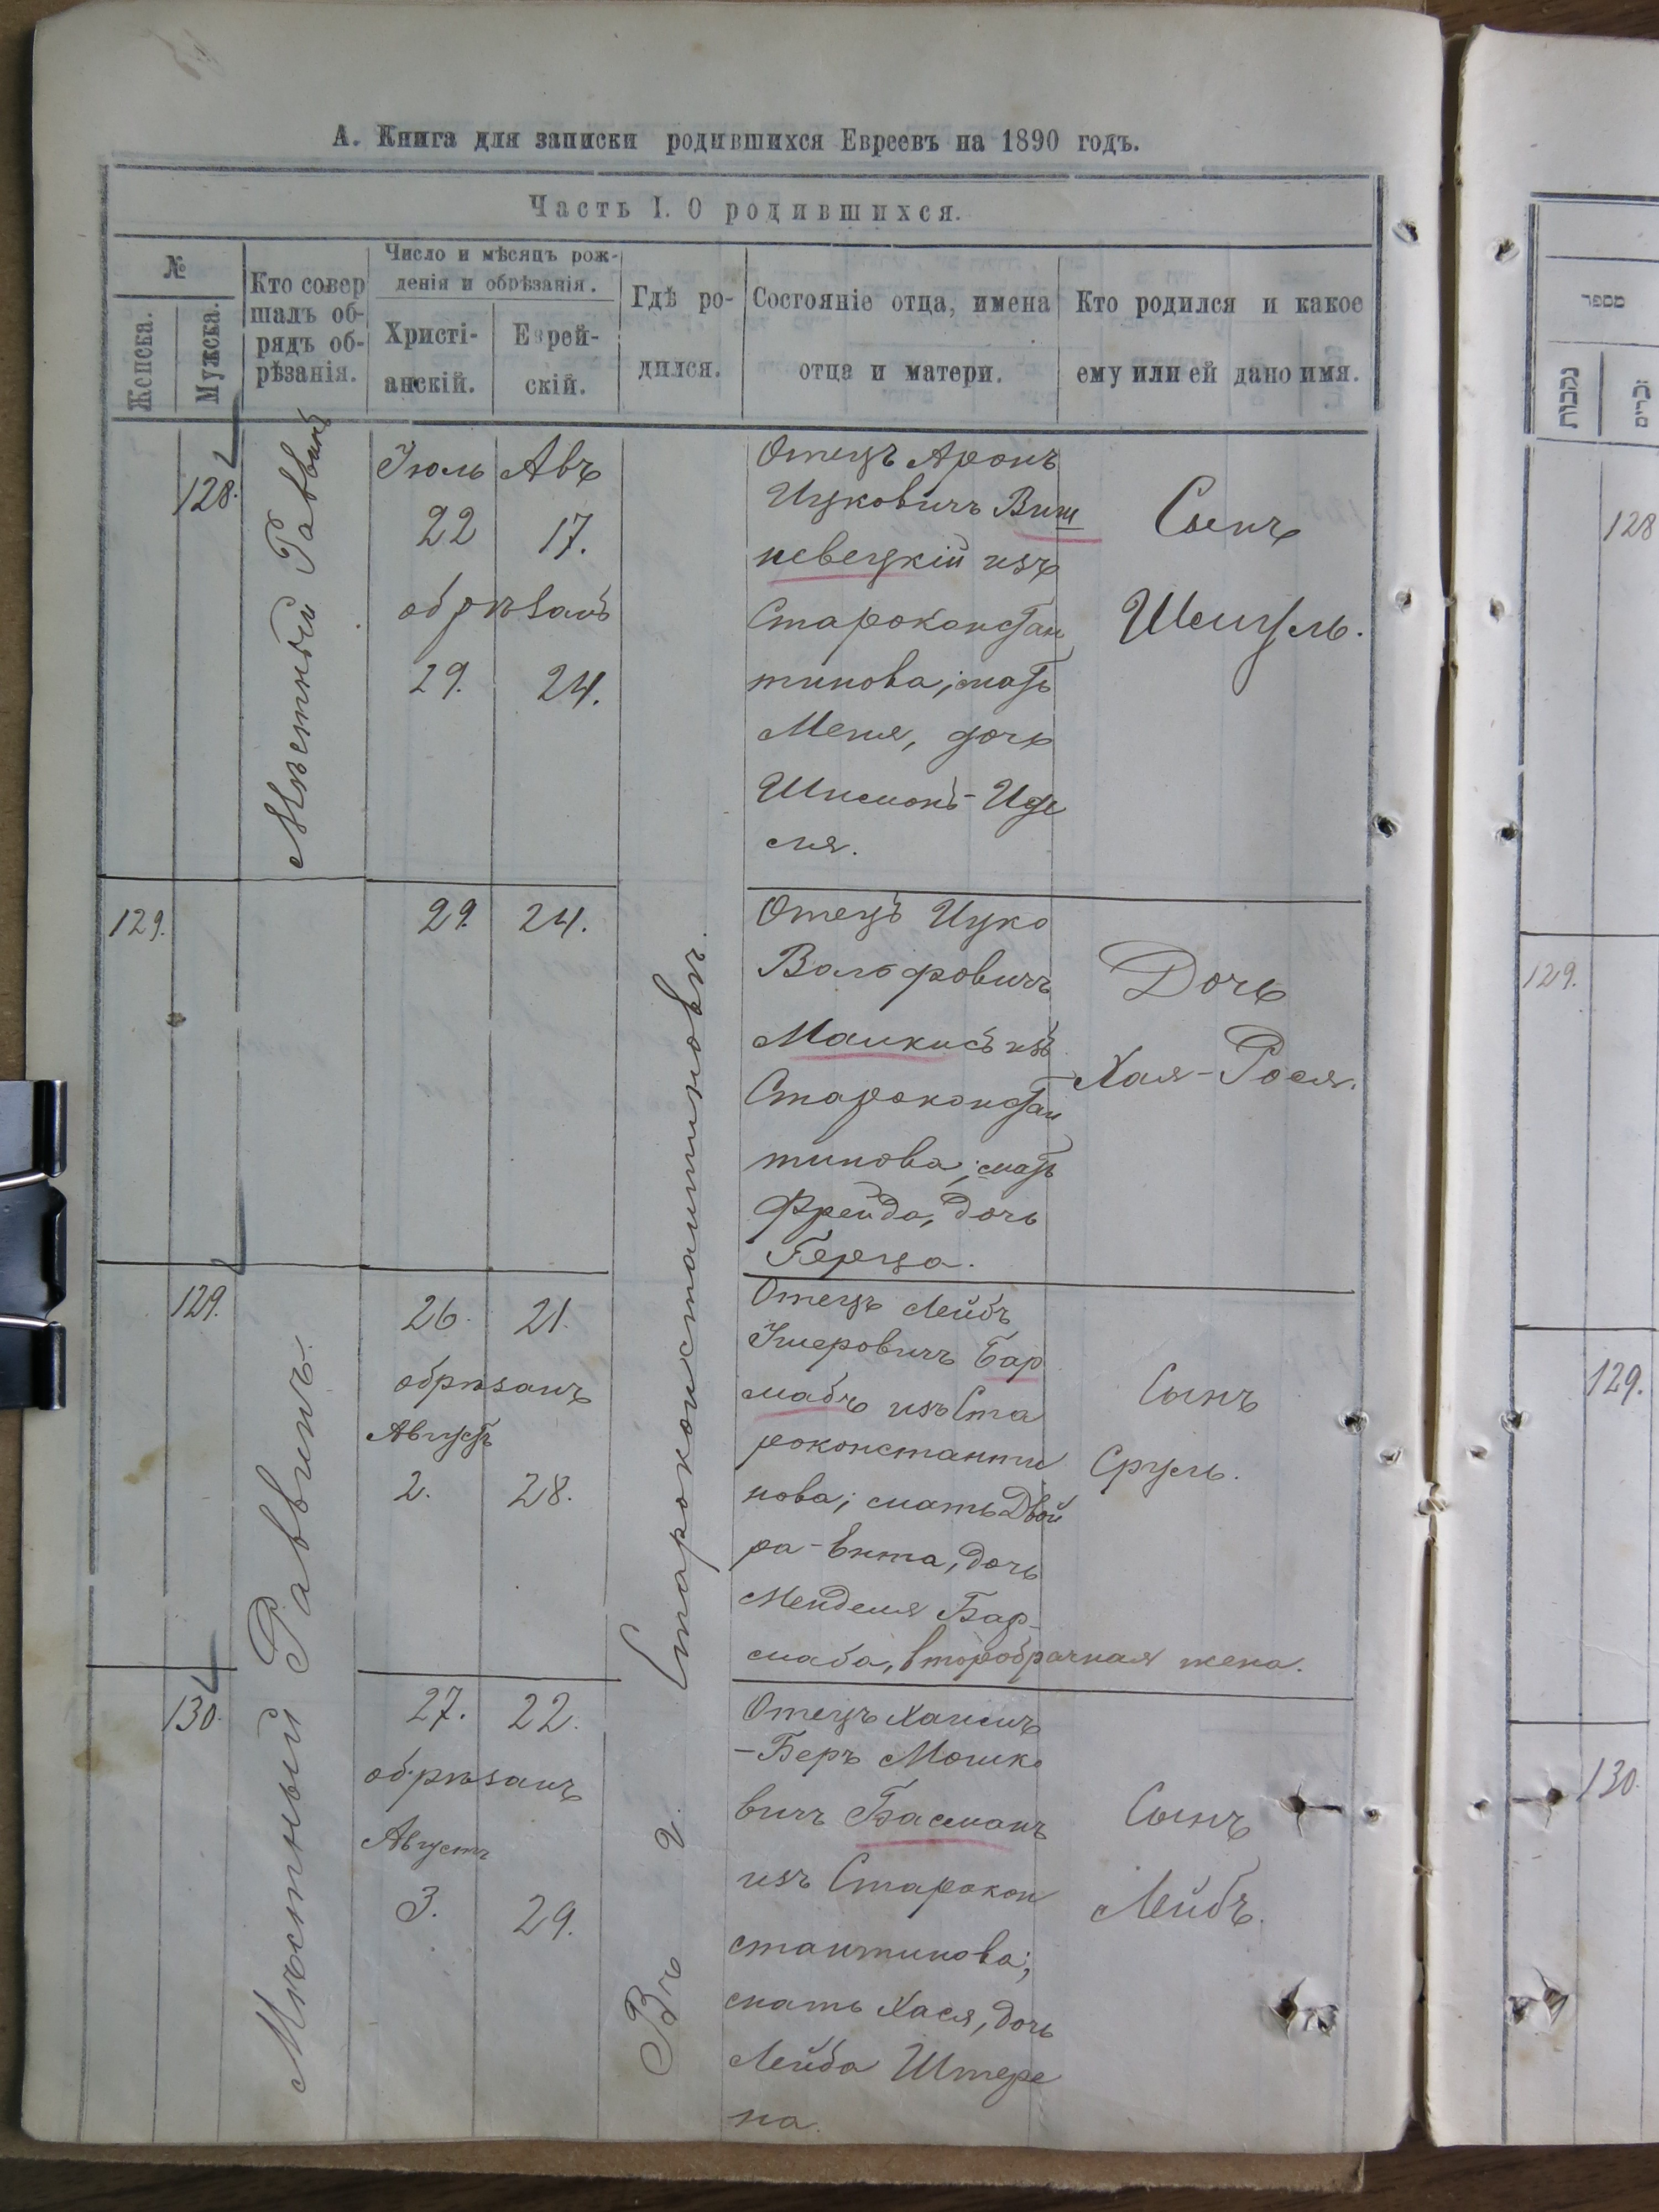 А. Книга для записки родившихся Евреевъ на 1890 годъ.
Часть I. О родившихся.
№
Женска.
Мужска.
Кто совер
шалъ об-
рядъ об-
рѣзанія.
Число и мѣсяцъ рож-
денія и обрѣзанія.
Христі-
анскій.
Еврей-
скій.
Гдѣ ро-
дился.
Состояніе отца, имена
отца и матери.
Кто родился и какое
ему или ей дано имя.
128.
Мѣстный Раввинъ
Іюль Авъ
22 17.
обрѣзанъ
29. 24.
Отецъ Аронъ
Ицковичъ Виш
невецкій изъ
Староконстан
тинова; мать
Меня, дочь
Шмионъ-Иде
ля.
Сынъ
129.
29. 24.
Отецъ Ицко
Вольфовичъ
Манкисъ изъ
Староконстан
тинова; мать
Фрейда, дочь
Герца.
Дочь
Хая-Рося.
129.
Мѣстный Раввинъ.
26. 21.
обрѣзанъ
Августъ
2. 28.
Отецъ Лейбъ
Ушеровичъ Бар
мабъ изъ Ста
роконстанти
нова; мать Двой
ра-Ента, дочь
Менделя Бар-
маба, второбрачная жена.
Сынъ
Сруль.
130.
27. 22.
обрѣзанъ
Августъ
3. 29.
Отецъ Хаимъ
-Беръ Мошко
вичъ Басманъ
изъ Старокон
стантинова;
мать Хася, дочь
Лейба Штере
на.
Сынъ
Лейбъ.
Въ г. Староконстантиновѣ.
מספר
נקבות
זכרים
128
129.
129.
130.